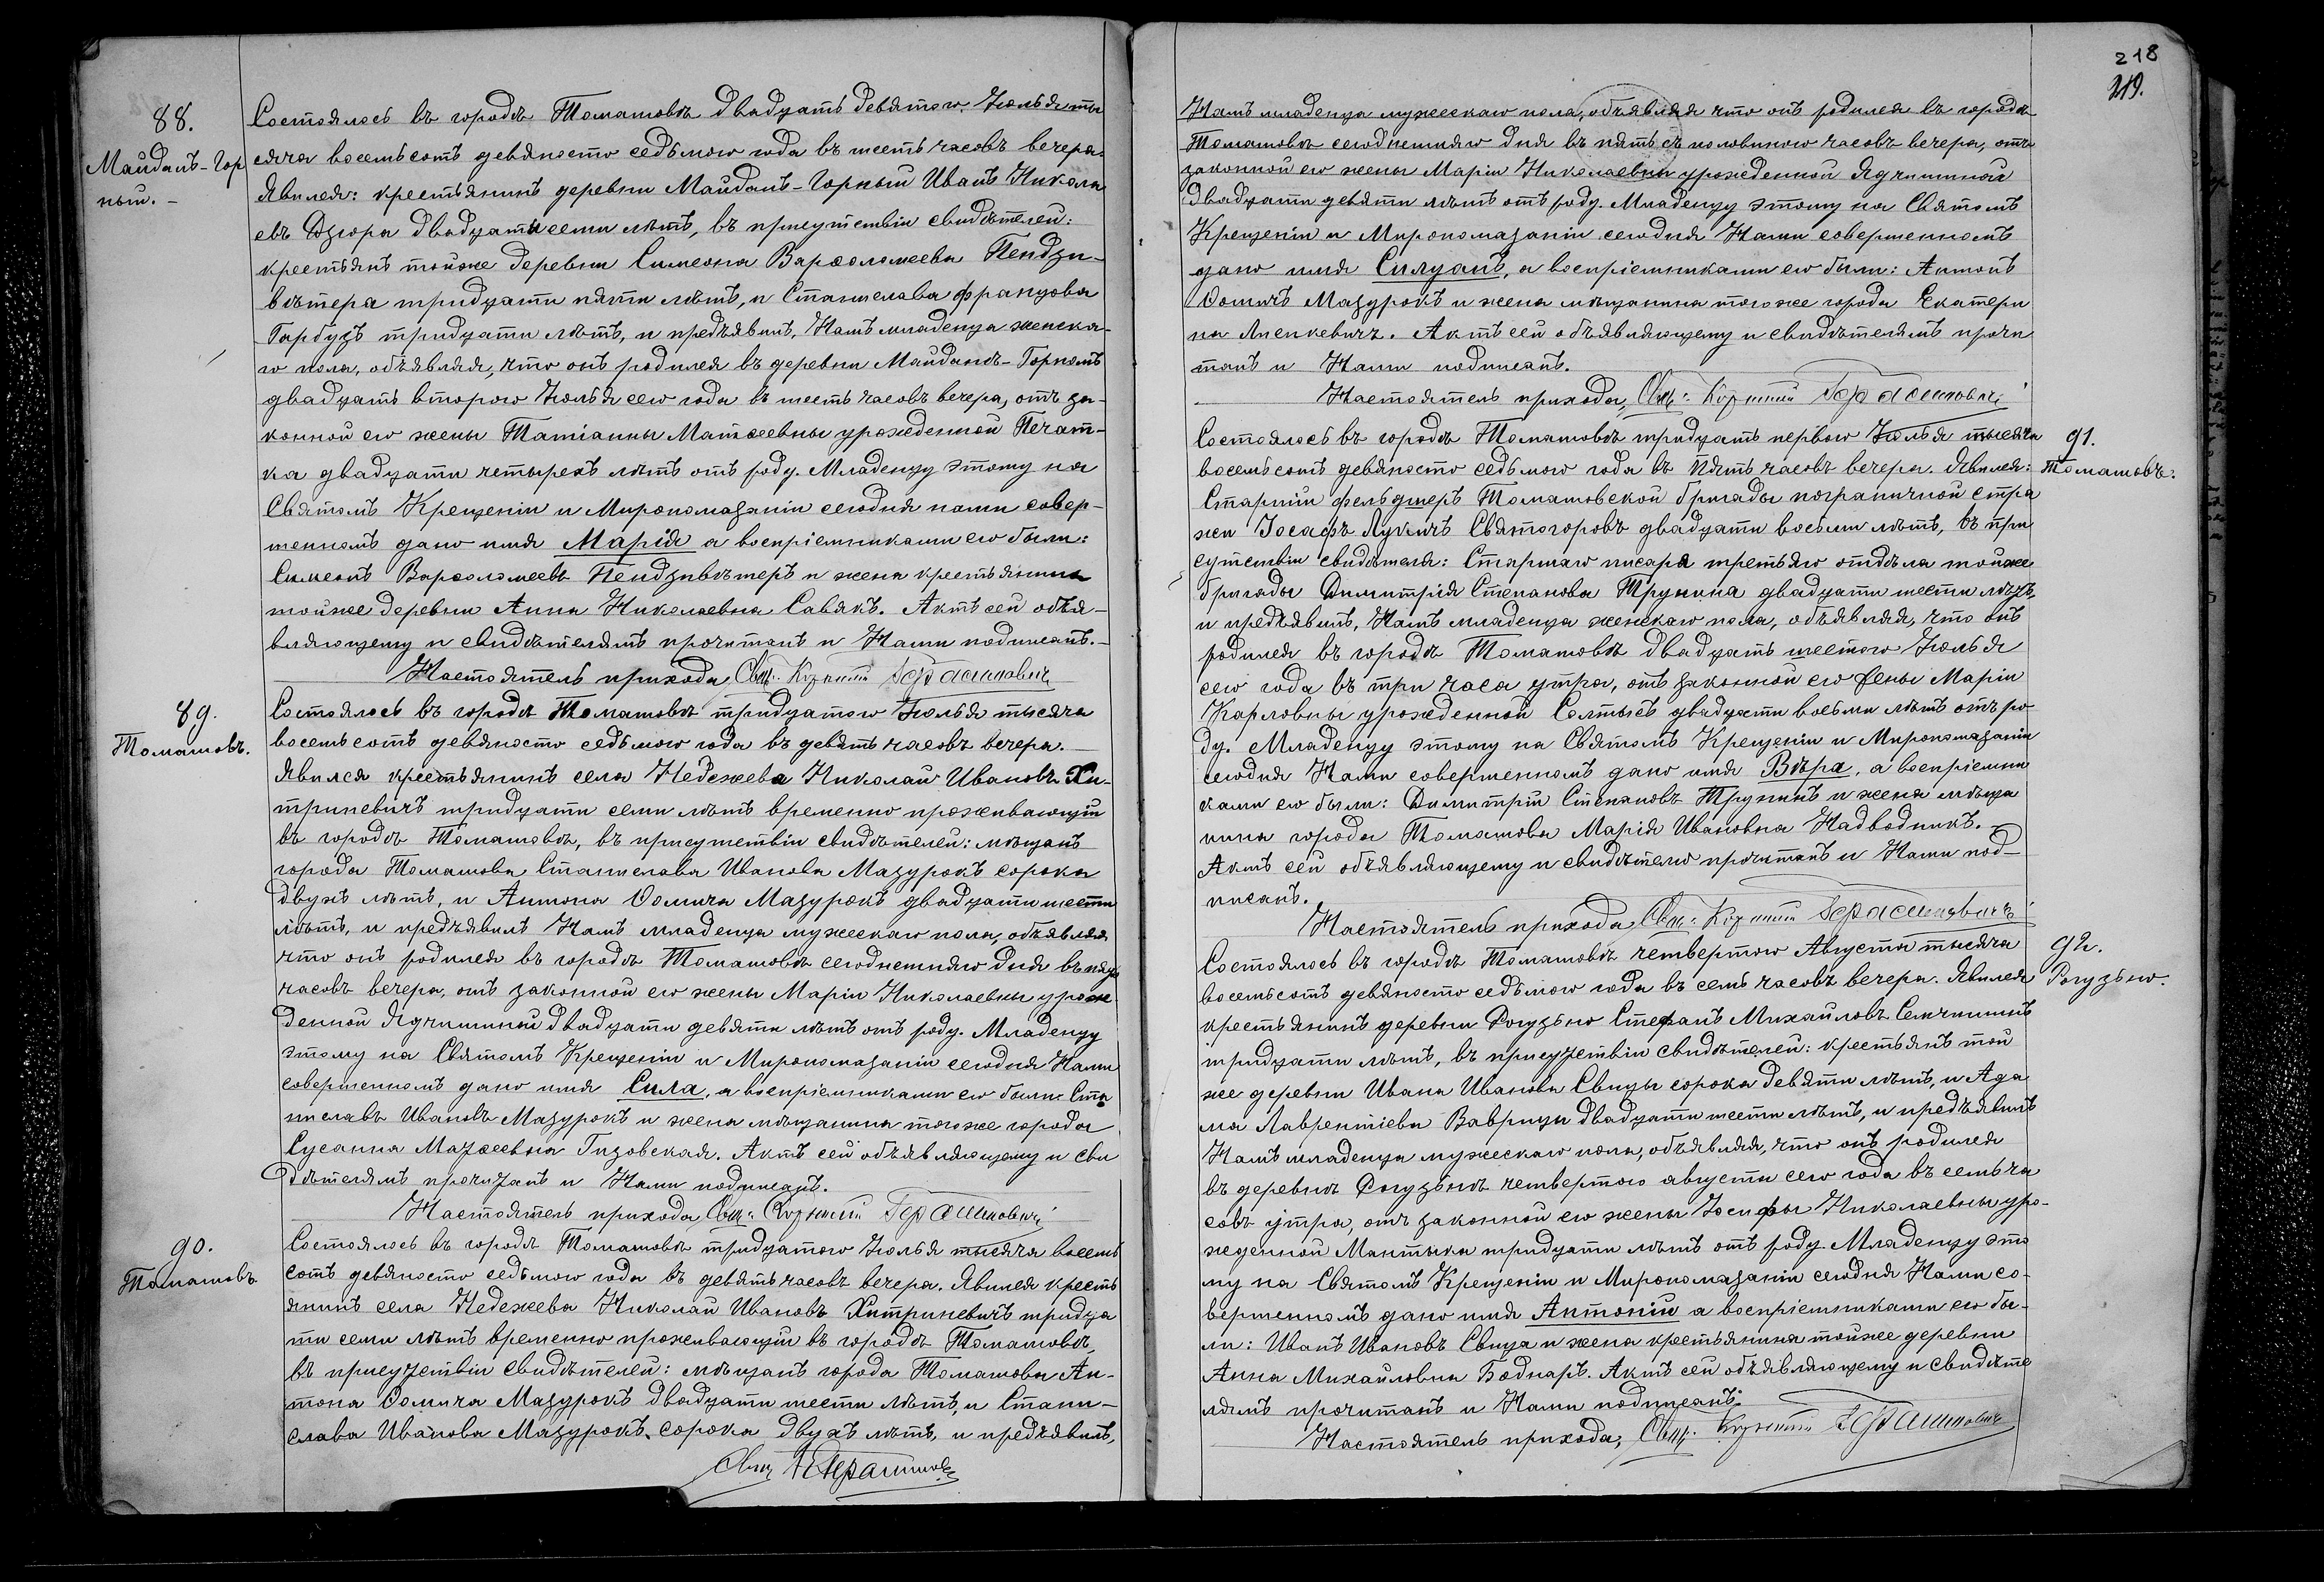 88.
Майданъ-Гор
ный. -
Состоялось въ городѣ Томашовѣ двадцать девятого Іюлья ты
сяча восемьсотъ девяносто седьмого года въ шесть часовъ вечера.
Явился: крестьянинъ деревни Майданъ-Горный Иванъ Никола
евъ Дзюра двадцати семи лѣтъ, въ присутствіи свидѣтелей:
крестьянъ тойже деревни Симеона Варѳоломеева Пендзи-
вѣтера тридцати пяти лѣтъ, и Станислава Францова
Гарбузъ тридцати лѣтъ, и предъявилъ, Намъ младенца женска-
го пола, объявляя, что онъ родился въ деревни Майданѣ-Горномъ
двадцать второго Іюлья сего года въ шесть часовъ вечера, отъ за-
конной его жены Татіанны Матѳевны урожденной Печат-
ка двадцати четырехъ лѣтъ отъ роду. Младенцу этому на
Святомъ Крещеніи и Миропомазаніи сегодня нами совер-
шенномъ дано имя Марія а воспріемниками его были:
Симеонъ Варѳоломеевъ Пендзивѣтеръ и жена крестьянина
тойже деревни Анна Николаевна Савякъ. Актъ сей объя-
вляющему и свидѣтелямъ прочитанъ и Нами подписанъ.-
Настоятель прихода, Свщ. Корнилій Герасимовичъ
89.
Томашовъ.
Состоялось въ городѣ Томашовѣ тридцатого Іюлья тысяча
восемьсотъ девяносто седьмого года въ девять часовъ вечера.
Явился крестьянинъ села Недежева Николай Ивановъ Хи-
триневичъ тридцати семи лѣтъ временно проживающій
въ городѣ Томашовѣ, въ присутствіи свидѣтелей: мѣщанъ
города Томашова Станислава Иванова Мазурокъ сорока
двухъ лѣтъ, и Антона Ѳомича Мазурокъ двадцати шести
лѣтъ, и предъявилъ Намъ младенца мужескаго пола, объявляя
что онъ родился въ городѣ Томашовѣ сегоднешняго дня въ пять
часовъ вечера, отъ законной его жены Маріи Николаевны урож
денной Ядчишиной двадцати девяти лѣтъ отъ роду. Младенцу
этому на Святомъ Крещеніи и Миропомазаніи сегодня Нами
совершенномъ дано имя Сила, а воспріемниками его были: Ста
ниславъ Ивановъ Мазурокъ и жена мѣщанина тогоже города
Сусанна Матѳеевна Гизовская. Актъ сей объявляющему и сви
дѣтелямъ прочитанъ и Нами подписанъ.
Настоятель прихода, Свщ. Корнилій Герасимовичъ
90.
Томашовъ
Состоялось въ городѣ Томашовѣ тридцатого Іюлья тысяча восемь
сотъ девяносто седьмого года въ девять часовъ вечера. Явился кресть
янинъ села Недежева Николай Ивановъ Хитриневичъ тридца
ти семи лѣтъ временно проживающій въ городѣ Томашовѣ,
въ присутствіи свидѣтелей: мѣщанъ города Томашова Ан-
тона Ѳомича Мазурокъ двадцати шести лѣтъ, и Стани-
слава Иванова Мазурокъ сорока двухъ лѣтъ, и предъявилъ,
Свщ. К Герасимовъ
218
219.
Намъ младенца мужескаго пола, объявляя что онъ родился въ городѣ
Томашовѣ сегоднешняго дня въ пять съ половиною часовъ вечера, отъ
законной его жены Маріи Николаевны урожденной Ядчишиной
двадцати девяти лѣтъ отъ роду. Младенцу этому на Святомъ
Крещеніи и Миропомазаніи сегодня Нами совершенномъ
дано имя Силуанъ, а воспріемниками его были: Антонъ
Ѳомичъ Мазурокъ и жена мѣщанина тогоже города Екатери
на Лиснкевичъ. Актъ сей объявляющему и свидѣтелямъ прочи
танъ и Нами подписанъ.
Настоятель прихода, Свщ. Корнилій Герасимовичъ
91.
Томашовъ.
Состоялось въ городѣ Томашовѣ тридцать первого Іюлья тысяча
восемьсотъ девяносто седьмого года въ пять часовъ вечера. Явился:
Старшій фельдшеръ Томашовской бригады пограничной стра
жи Іосафъ Лукичъ Святогоровъ двадцати восьми лѣтъ, въ при
сутствіи свидѣтеля: Старшаго писаря третьяго отдѣла тойже
бригады Димитрія Степанова Трунина двадцати шести лѣтъ,
и предъявилъ, Намъ младенца женскаго пола, объявляя, что онъ
родился въ городѣ Томашовѣ двадцать шестого Іюлья
сего года въ три часа утра, отъ законной его жены Маріи
Карловны урожденной Солтысъ двадцати восьми лѣтъ отъ ро
ду. Младенцу этому на Святомъ Крещеніи и Миропомазаніи
сегодня Нами совершенномъ дано имя Вѣра, а воспріемни
ками его были: Димитрій Степановъ Трунинъ и жена мѣща
нина города Томашова Марія Ивановна Надводникъ.
Актъ сей объявляющему и свидѣтелю прочитанъ и Нами под-
писанъ.
Настоятель прихода, Свщ. Корнилій Герасимовичъ
92.
Рогузьно.
Состоялось въ городѣ Томашовѣ четвертого Августа тысяча
восемьсотъ девяносто седьмого года въ семь часовъ вечера. Явился
крестьянинъ деревни Рогузьно Стефанъ Михайловъ Семчишинъ
тридцати лѣтъ, въ присутствіи свидѣтелей: крестьянъ той
же деревни Ивана Иванова Свищы сорока девяти лѣтъ, и Ада
ма Лаврентіева Ваврищи двадцати шести лѣтъ, и предъявилъ
Намъ младенца мужескаго пола, объявляя, что онъ родился
въ деревнѣ Рогузьнѣ четвертого августа сего года въ семь ча
совъ утра, отъ законной его жены Іосифы Николаевны уро-
жденной Мантыка тридцати лѣтъ отъ роду. Младенцу это
му на Святомъ Крещеніи и Миропомазаніи сегодня Нами со-
вершенномъ дано имя Антоній а воспріемниками его бы-
ли: Иванъ Ивановъ Свища и жена крестьянина тойже деревни
Анна Михайловна Боднаръ. Актъ сей объявляющему и свидѣте
лямъ прочитанъ и Нами подписанъ.
Настоятель прихода, Свщ. Корнилій Герасимовичъ